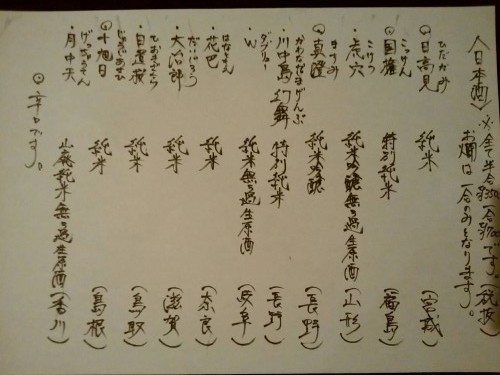 〈日本酒〉※全て半合¥350 一合¥700です。(税抜)
お燗は一合のみとなります。
ひだかみ
◎日高見 純米 (宮城)
こっけん
◎国権 特別純米 (福島)
こけつ
・虎穴 純米吟醸無ろ過生原酒 (山形)
ますみ
◎真澄 純米吟醸 (長野)
かわなかじまげんぶ
・川中島幻舞 特別純米 (長野)
ダブリュー
・W 純米無ろ過生原酒 (岐阜)
はなともえ
・花巴 純米 (奈良)
だいじろう
・大治郎 純米 (滋賀)
ひおきざくら
・日置桜 純米 (鳥取)
じゅうじあさひ
◎十旭日 純米 (島根)
・月中天 山廃純米無ろ過生原酒 (香川)
◎辛口です。